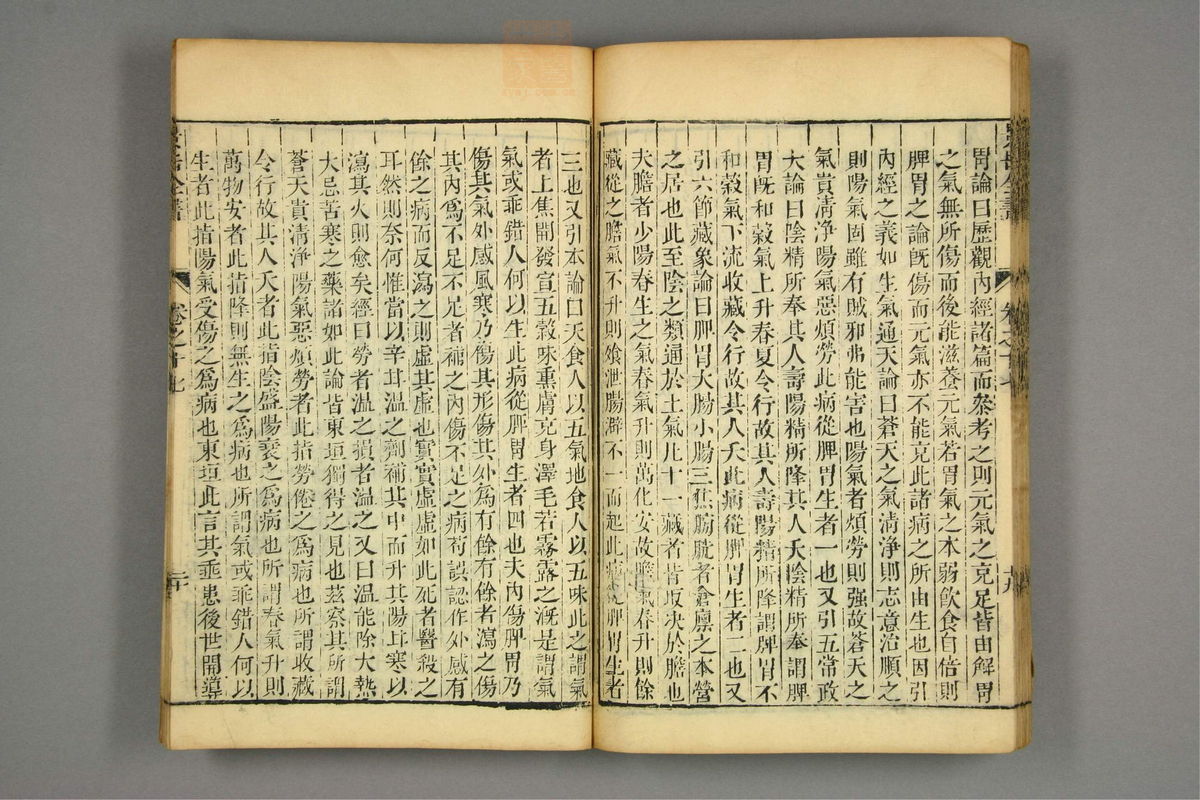 胃論曰歷觀內經諸篇而叅考之則元氣之充足皆由脾胃
之氣無所傷而後能滋養元氣若胃氣之本弱飲食自倍則
脾胃之論旣傷而元氣亦不能充此諸病之所由生也因引
內經之義如生氣通天論曰蒼天之氣清淨則志意治順之
則陽氣固雖有賊邪弗能害也陽氣者煩勞則强故蒼天之
氣貴清淨陽氣惡煩勞此病從脾胃生者一也又引五常政
大論曰陰精所奉其人壽陽精所降其人夭陰精所奉謂脾
胃旣和穀氣上升春夏令行故其人壽陽精所降謂脾胃不
和穀氣下流收藏令行故其人夭此病從脾胃生者二也又
引六節藏象論曰脾胃大腸小腸三焦膀胱者倉廩之本營
之居也此至陰之類通於土氣凡十一藏者皆取决於膽也
夫膽者少陽春生之氣春氣升則萬化安故膽氣春升則餘
藏從之膽氣不升則飧泄腸澼不一而起此病從脾胃生者
三也又引本論曰天食人以五氣地食人以五味此之謂氣
者上焦開發宣五穀味熏膚充身澤毛若霧露之溉是謂氣
氣或乖錯人何以生此病從脾胃生者四也夫內傷脾胃乃
傷其氣外感風寒乃傷其形傷其外爲有餘有餘者瀉之傷
其內爲不足不足者補之內傷不足之病苟誤認作外感有
餘之病而反瀉之則虛其虛也實實虛虛如此死者醫殺之
耳然則奈何惟當以辛甘溫之劑補其中而升其陽甘寒以
瀉其火則愈矣經曰勞者温之損者温之又曰温能除大熱
大忌苦寒之藥諸如此論皆東垣獨得之見也茲察其所謂
蒼天貴清淨陽氣惡煩勞者此指勞倦之爲病也所謂收藏
令行故其人夭者此指陰盛陽衰之爲病也所謂春氣升則
萬物安者此指降則無生之爲病也所謂氣或乖錯人何以
生者此指陽氣受傷之爲病也東垣此言其垂患後世開導
景岳全書
卷之十七
十九
景岳全書
卷之十七
二十